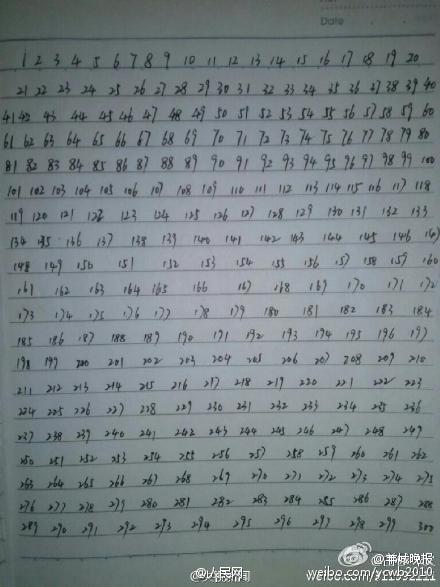 Date
1 2 3 4 5 6 7 8 9 10 11 12 13 14 15 16 17 18 19 20
21 22 23 24 25 26 27 28 29 30 31 32 33 34 35 36 37 38 39 40
41 42 43 44 45 46 47 48 49 50 51 52 53 54 55 56 57 58 59 60
61 62 63 64 65 66 67 68 69 70 71 72 73 74 75 76 77 78 79 80
81 82 83 84 85 86 87 88 89 90 91 92 93 94 95 96 97 98 99 100
101 102 103 104 105 106 107 108 109 110 111 112 113 114 115 116 117 118
119 120 121 122 123 124 125 126 127 128 129 130 131 132 133
134 135 136 137 138 139 140 141 142 143 144 145 146 147
148 149 150 151 152 153 154 155 156 157 158 159 160
161 162 163 164 165 166 167 168 169 170 171 172
173 174 175 176 177 178 179 180 181 182 183 184
185 186 187 188 189 190 191 192 193 194 195 196 197
198 199 200 201 202 203 204 205 206 207 208 209 210
211 212 213 214 215 216 217 218 219 220 221 222 223
224 225 226 227 228 229 230 231 232 233 234 235 236
237 238 239 240 241 242 243 244 245 246 247 248 249
250 251 252 253 254 255 256 257 258 259 260 261 262
263 264 265 266 267 268 269 270 271 272 273 274 275
276 277 278 279 280 281 282 283 284 285 286 287 288
289 290 291 292 293 294 295 296 297 298 299 300
@羊城晚报
@人民网